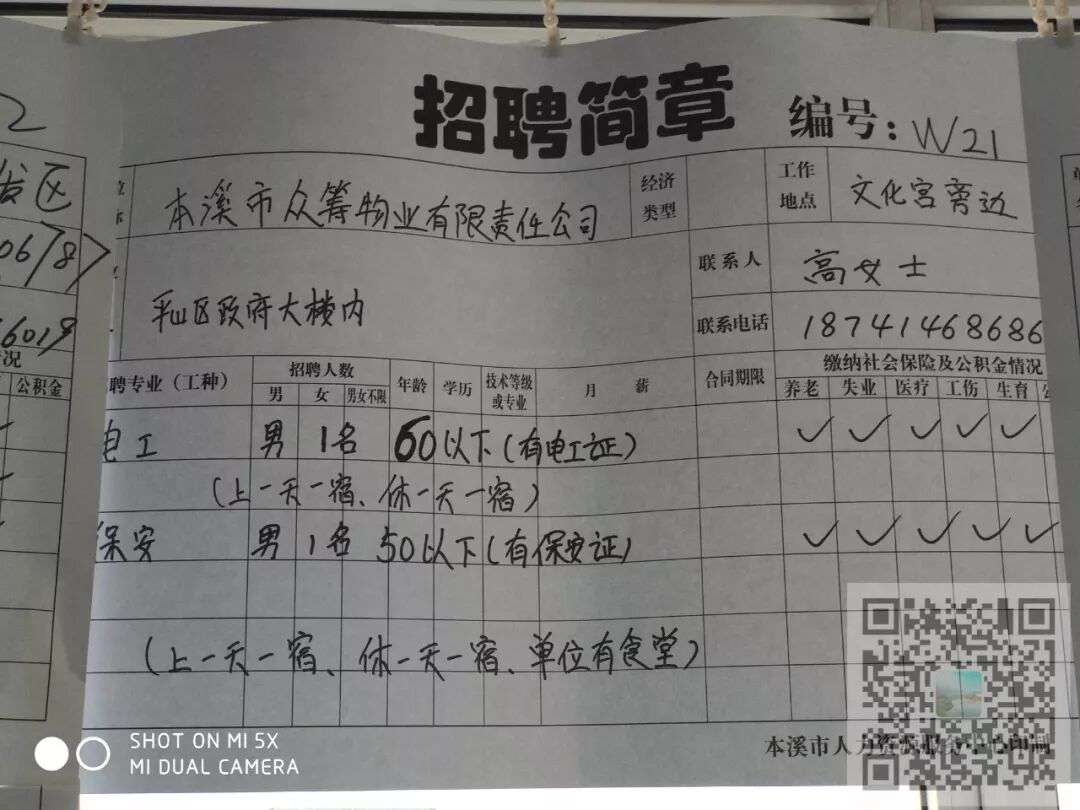 招聘简章
编号: W21
本溪市众筹物业有限责任公司
经济类型
工作地点
文化宫旁边
平山区政府大楼内
联系人
高女士
联系电话
18741468686
聘专业（工种）
招聘人数
男 女 男女不限
年龄 学历
技术等级或专业
月 薪
合同期限
缴纳社会保险及公积金情况
养老 失业 医疗 工伤 生育
电工 男 1名 60以下(有电工证) ✓ ✓ ✓ ✓ ✓
(上一天一宿、休一天一宿)
保安 男 1名 50以下(有保安证) ✓ ✓ ✓ ✓ ✓
(上一天一宿、休一天一宿、单位有食堂)
本溪市人力资源服务中心印制
2
发区
06/8
6019
况
公积金
SHOT ON MI 5X
MI DUAL CAMERA